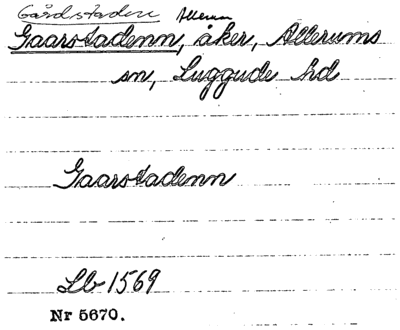 Gårdstaden Allerum
Gaarstadenn, åker, Allerums
sn, Luggude hd
Gaarstadenn
Lb 1569
Nr 5670.